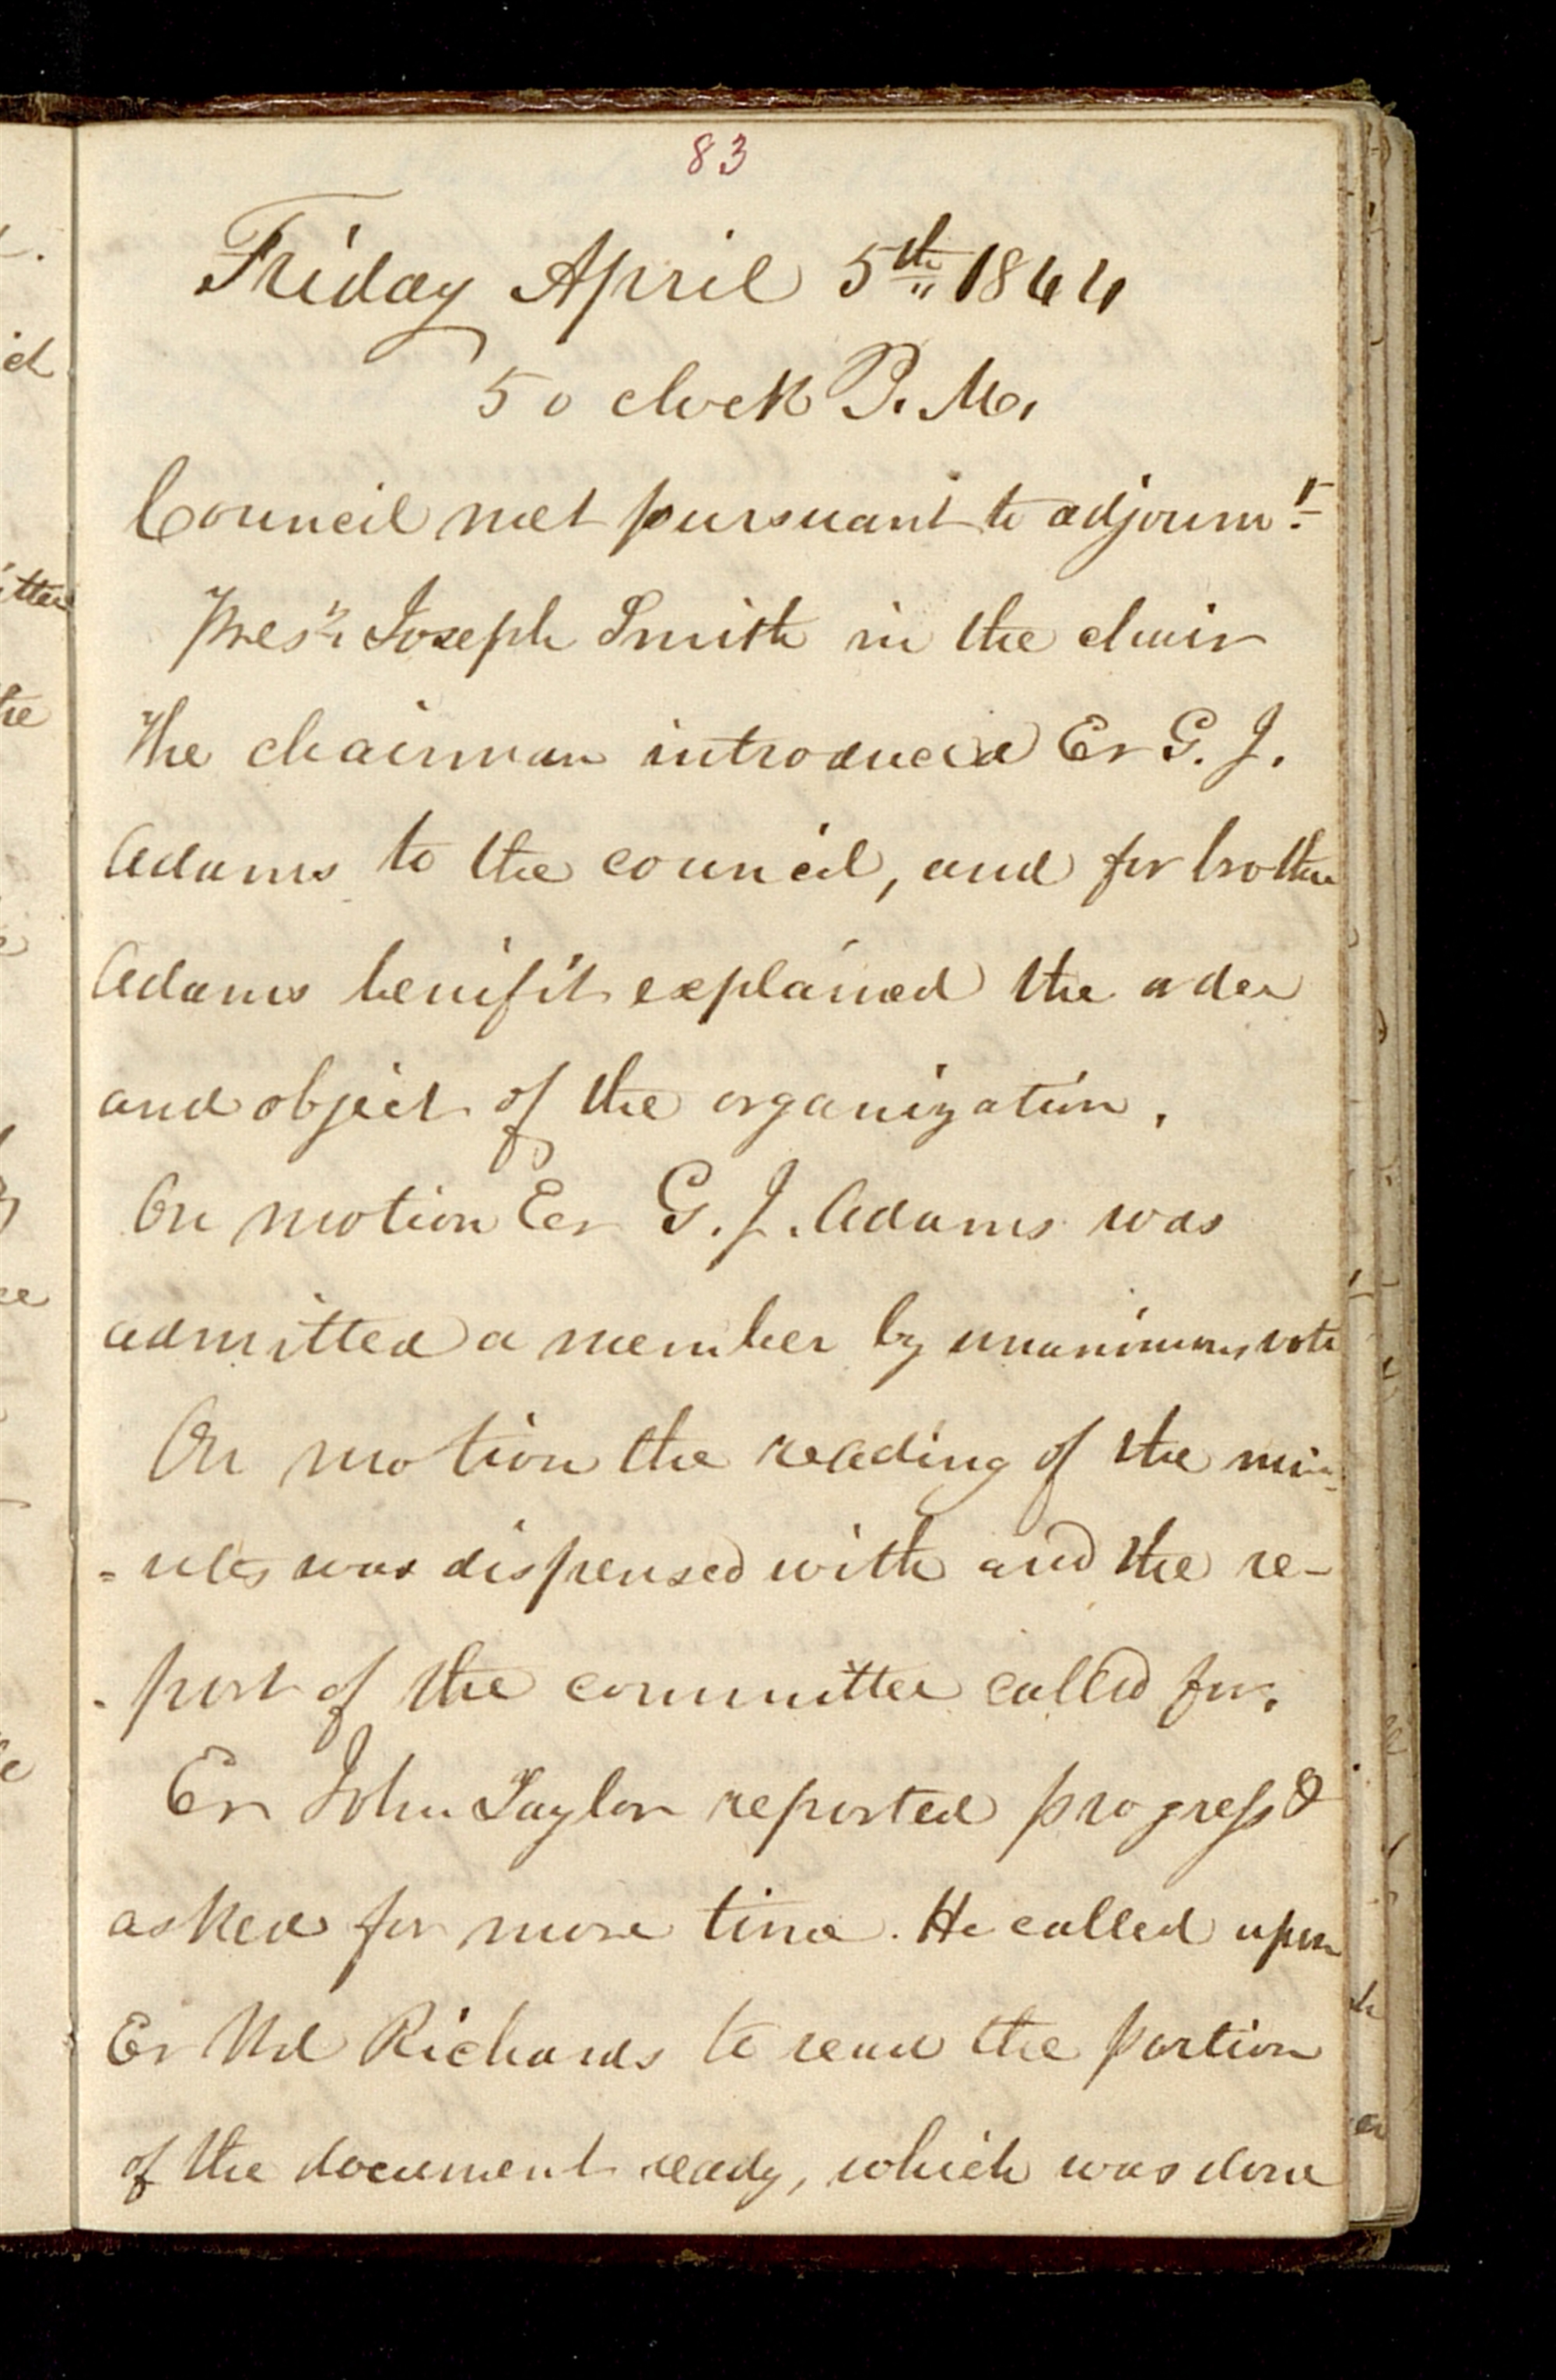 83
Friday April 5th 1844
5 o clock P. M.
Council met pursuant to adjournt.
Prest. Joseph Smith in the chair
The chairman introduced Er G. J.
Adams to the council, and for brother
Adams benifit explained the order
and object of the organization.
On motion Er G. J. Adams was
admitted a member by unanimous vote
On motion the reading of the min=
=utes was dispensed with and the re-
-port of the committee called for.
Er John Taylor reported progress &
asked for more time. He called upon
Er Wd Richards to read the portion
of the document ready, which was done